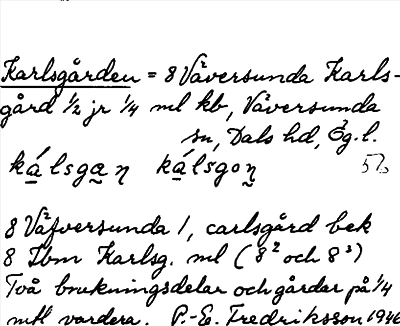 Karlsgården = 8 Väversunda Karls-
gård 1/2 jr 1/4 ml kb, Väversunda
sn, Dals hd, Ög.l.
kálsgan kálsgon
8 Väfversunda 1, carlsgård bek
8 Ibm Karlsg. ml (8² och 8³)
Två brukningsdelar och gårdar på 1/4
mtl vardera. P.-E. Fredriksson 1946